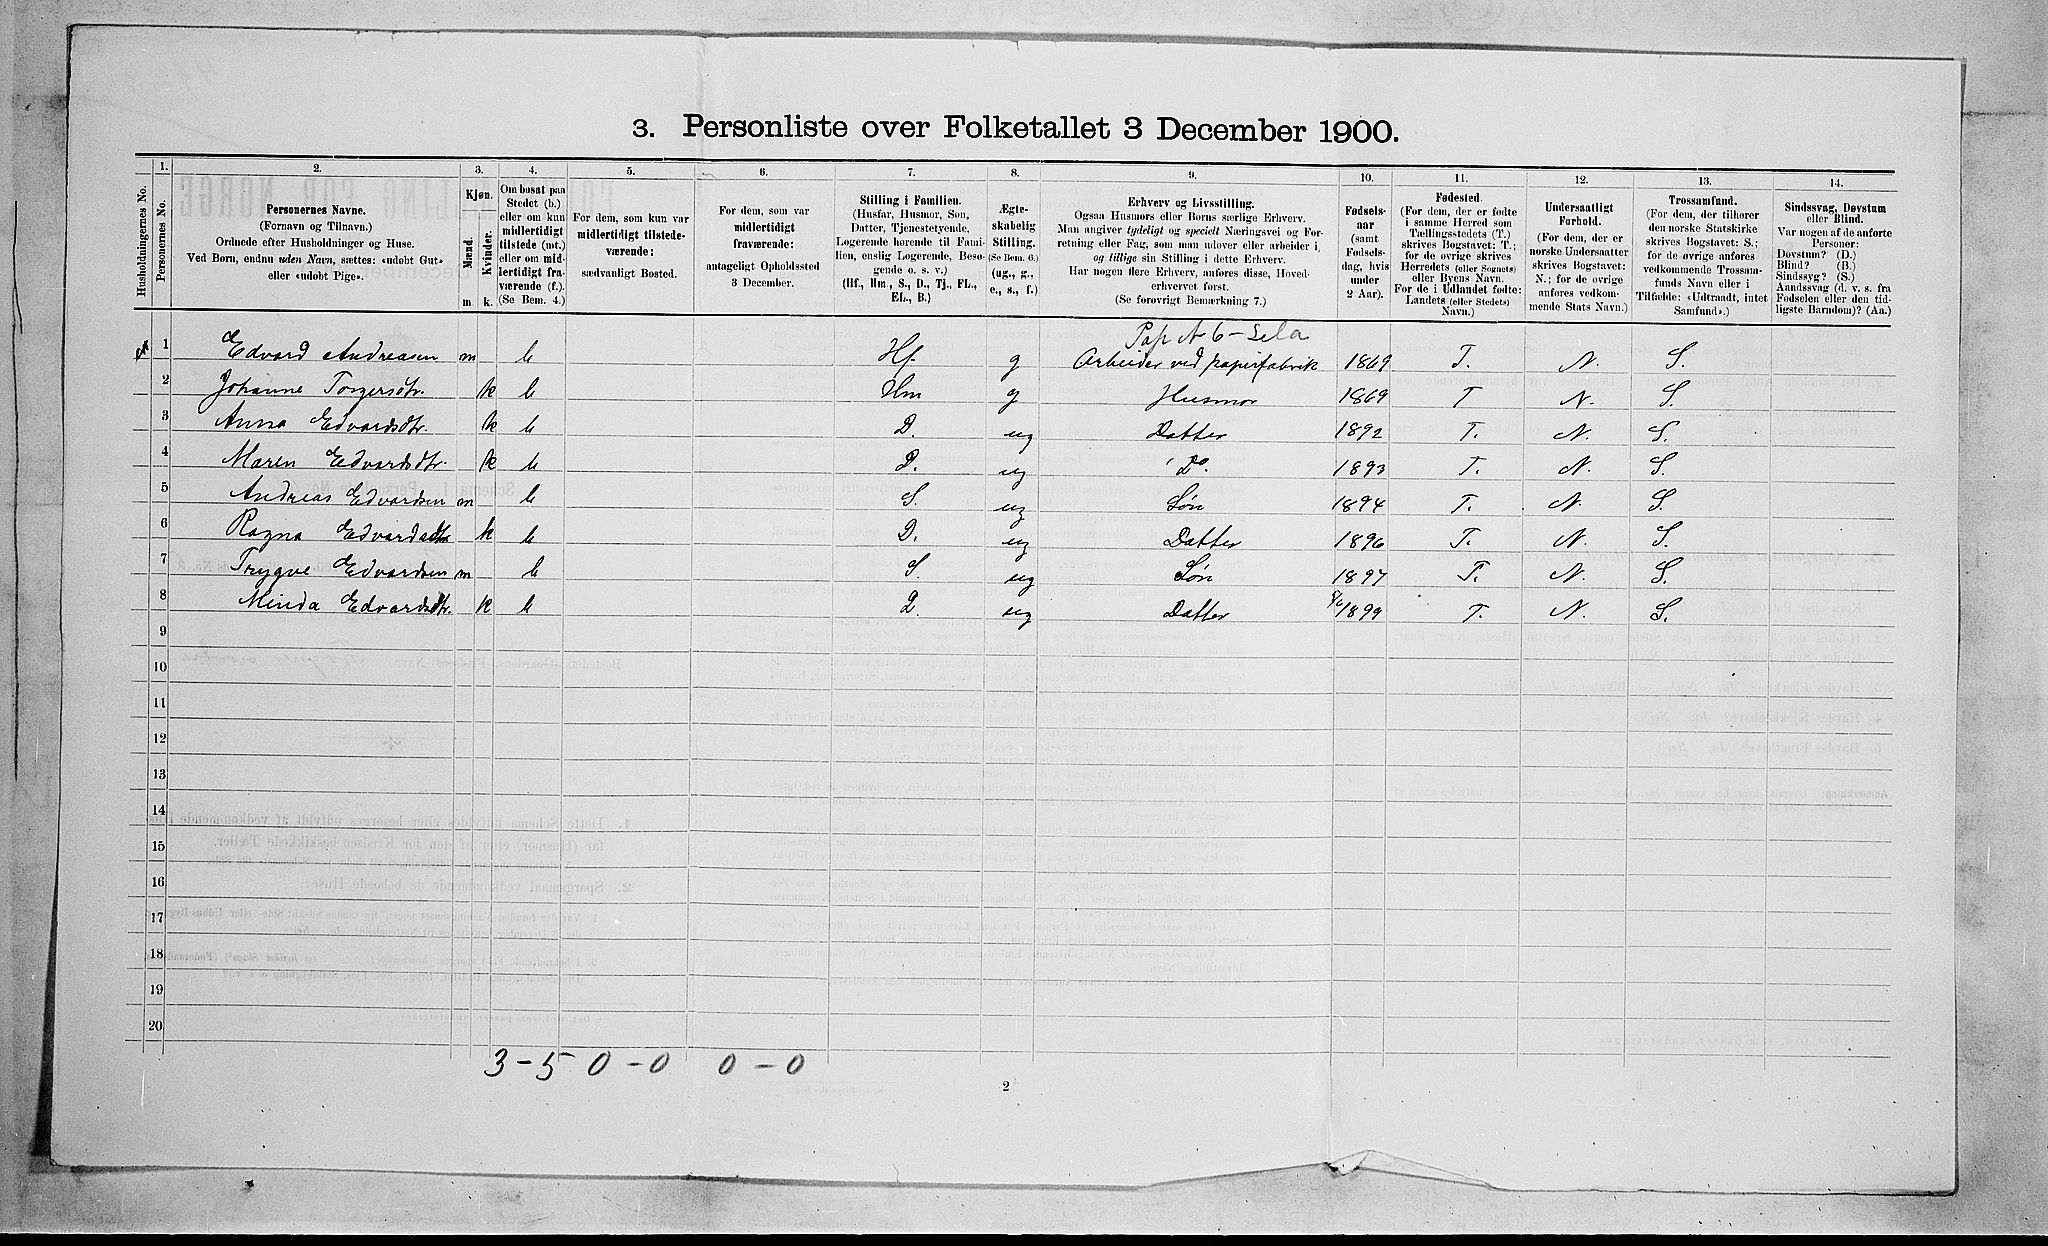 3. Personliste over Folketallet 3 December 1900.
Husholdningernes No.
1.
Personernes No.
2.
Personernes Navne.
(Fornavn og Tilnavn.)
Ordnede efter Husholdninger og Huse.
Ved Børn, endnu uden Navn, sættes: «udøbt Gut»
eller «udøbt Pige».
3.
Kjøn.
Mænd.
Kvinder.
m k.
4.
Om bosat paa
Stedet (b.)
eller om kun
midlertidigt
tilstede (mt.)
eller om mid-
lertidigt fra-
værende (f.).
(Se Bem. 4.)
5.
For dem, som kun var
midlertidigt tilstede-
værende:
sædvanligt Bosted.
6.
For dem, som var
midlertidigt
fraværende:
antageligt Opholdssted
3 December.
7.
Stilling i Familien.
(Husfar, Husmor, Søn,
Datter, Tjenestetyende,
Logerende hørende til Fami-
lien, enslig Logerende, Besø-
gende o. s. v.)
(Hf., Hm., S., D., Tj., FL.,
EL., B.)
8.
Ægte-
skabelig
Stilling.
(Se Bem. 6.)
(ug., g.,
e., s., f.)
9.
Erhverv og Livsstilling.
Ogsaa Husmors eller Børns særlige Erhverv.
Man angiver tydeligt og specielt Næringsvei og For-
retning eller Fag, som man udøver eller arbeider i,
og tillige sin Stilling i dette Erhverv.
Har nogen flere Erhverv, anføres disse, Hoved-
erhvervet først.
(Se forøvrigt Bemærkning 7.)
10.
Fødsels-
aar
(samt
Fødsels-
dag, hvis
under
2 Aar).
11.
Fødested.
(For dem, der er fødte
i samme Herred som
Tællingsstedets (T.)
skrives Bogstavet: T.;
for de øvrige skrives
Herredets (eller Sognets)
eller Byens Navn.
For de i Udlandet fødte:
Landets (eller Stedets)
Navn.)
12.
Undersaatligt
Forhold.
(For dem, der er
norske Undersaatter
skrives Bogstavet:
N.; for de øvrige
anføres vedkom-
mende Stats Navn.)
13.
Trossamfund.
(For dem, der tilhører
den norske Statskirke
skrives Bogstav: S.;
for de øvrige anføres
vedkommende Trossam-
funds Navn eller i
Tilfælde: «Udtraadt, intet
Samfund».)
14.
Sindssvag, Døvstum
eller Blind.
Var nogen af de anførte
Personer:
Døvstum? (D.)
Blind? (B.)
Sindssyg? (S.)
Aandssvag (d. v. s. fra
Fødselen eller den tid-
ligste Barndom)? (Aa.)
1 Edvard Andreasen m b Hf. g Arbeider ved papirfabrik 1869 T. N. S.
2 Johanne Torgersdtr. k b Hm g Husmor 1869 T N. S.
3 Anna Edvardsdtr. k b D. ug Datter 1892 T. N. S.
4 Maren Edvardsdtr. k b D. ug Do. 1893 T. N. S.
5 Andreas Edvardsen m b S. ug Søn 1894 T. N. S.
6 Ragna Edvardsdtr k b D. ug Datter 1896 T. N. S.
7 Trygve Edvardsen m b S. ug Søn 1897 T. N. S.
8 Minda Edvardsdtr. k b D. ug Datter 1899 T. N. S.
9
10
11
12
13
14
15
16
17
18
19
20
3 – 5 0 – 0 0 – 0
2